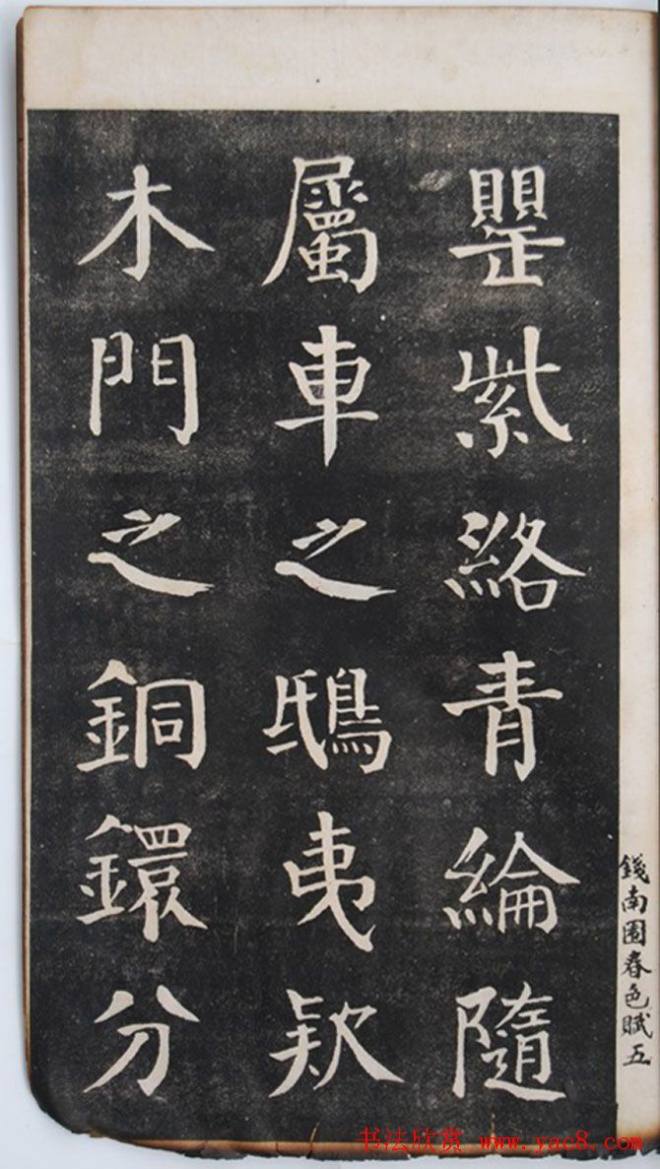 罌紫絡青綸隨
屬車之鴟夷欵
木門之銅鐶分
錢南園春色賦五
书法欣赏 www.yac8.com